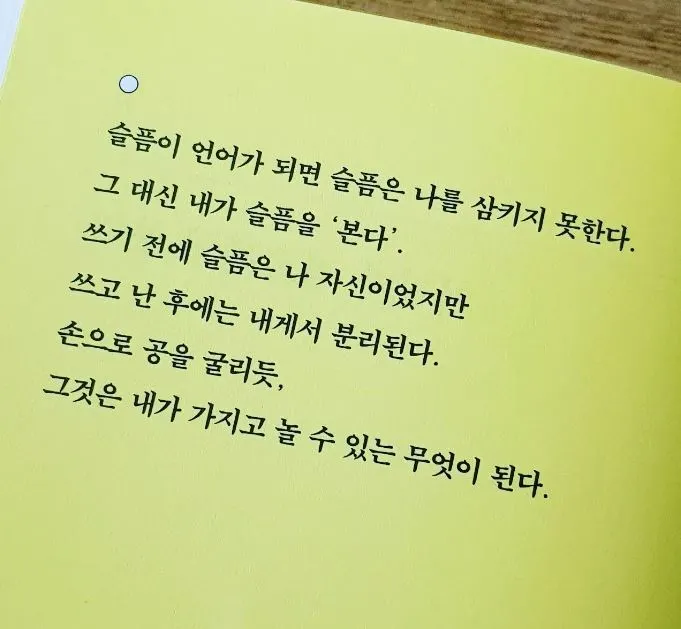 슬픔이 언어가 되면 슬픔은 나를 삼키지 못한다.
그 대신 내가 슬픔을 ‘본다’.
쓰기 전에 슬픔은 나 자신이었지만
쓰고 난 후에는 내게서 분리된다.
손으로 공을 굴리듯,
그것은 내가 가지고 놀 수 있는 무엇이 된다.